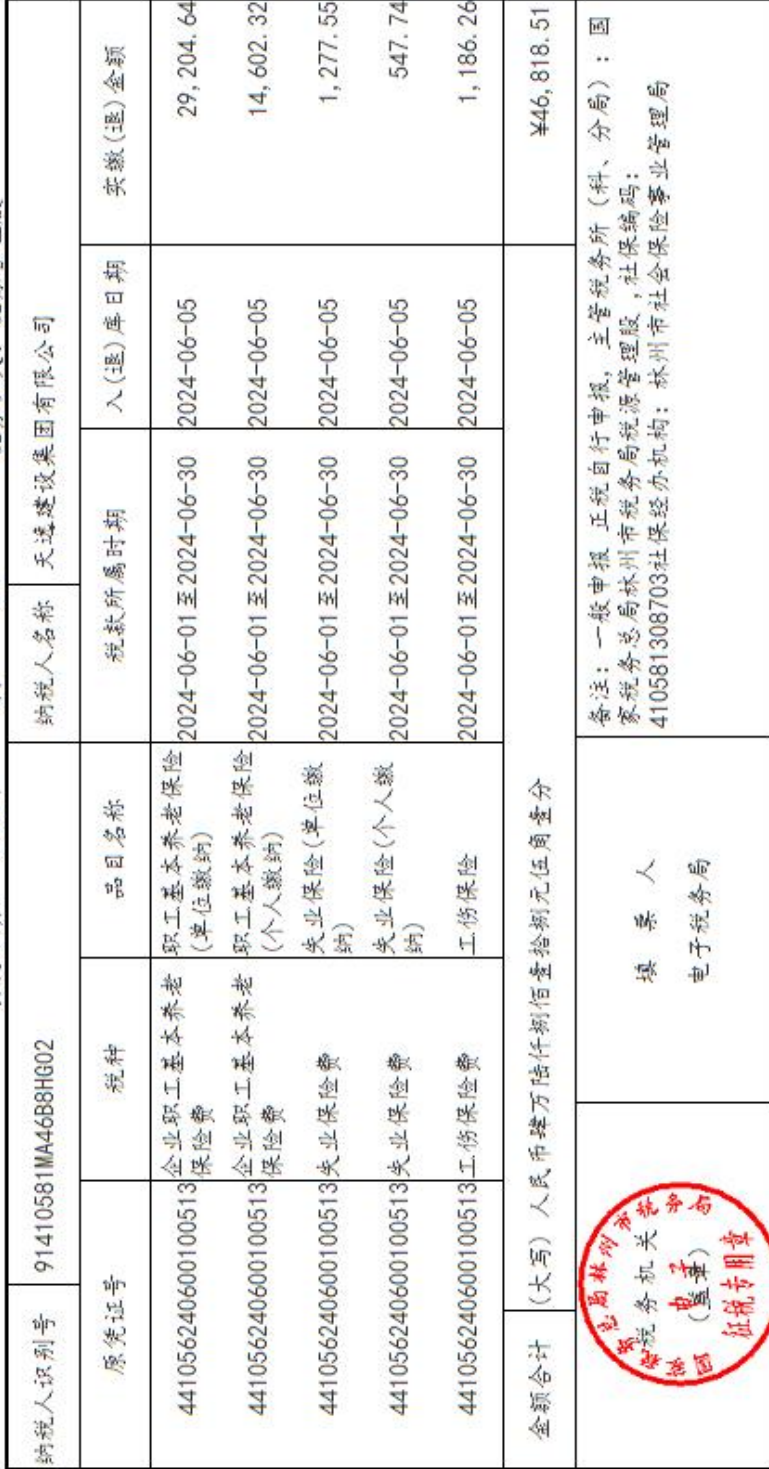 纳税人识别号 91410581MA46B8HG02 纳税人名称 天逸建设集团有限公司
原凭证号 税种 品目名称 税款所属时期 入(退)库日期 实缴(退)金额
441056240600100513 企业职工基本养老保险费 职工基本养老保险(单位缴纳) 2024-06-01至2024-06-30 2024-06-05 29,204.64
441056240600100513 企业职工基本养老保险费 职工基本养老保险(个人缴纳) 2024-06-01至2024-06-30 2024-06-05 14,602.32
441056240600100513 失业保险费 失业保险(单位缴纳) 2024-06-01至2024-06-30 2024-06-05 1,277.55
441056240600100513 失业保险费 失业保险(个人缴纳) 2024-06-01至2024-06-30 2024-06-05 547.74
441056240600100513 工伤保险费 工伤保险 2024-06-01至2024-06-30 2024-06-05 1,186.26
金额合计 (大写) 人民币肆万陆仟捌佰壹拾捌元伍角壹分 ¥46,818.51
税务机关
(盖章)
国家税务总局林州市税务局
电子
征税专用章
填票人
电子税务局
备注: 一般申报 正税自行申报, 主管税务所 (科、分局) : 国
家税务总局林州市税务局税源管理股 ,社保编码:
410581308703社保经办机构: 林州市社会保险事业管理局